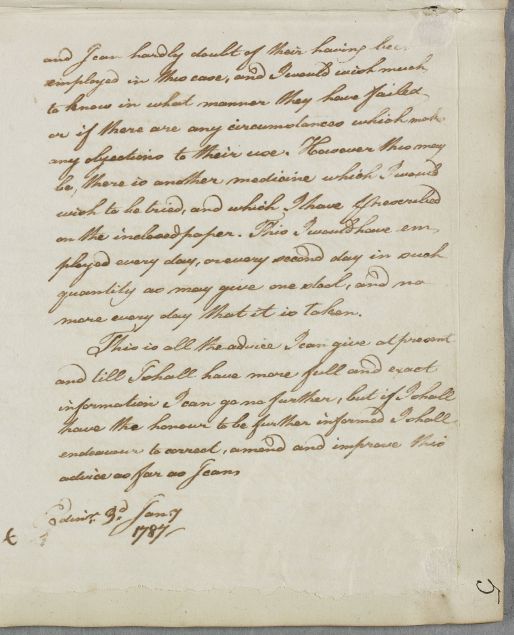 and I can hardly doubt of their having been
employed in this case, and I would wish much
to know in what manner they have failed
or if there are any circumstances which make
any objections to their use. However this may
be, there is another medicine which I would
wish to be tried, and which I have prescribed
on the inclosed paper. This I would have em,
ployed every day, or every second day in such
quantity as may give one stool, and no
more every day that it is taken.
This is all the advice I can give at present
and till I shall have more full and exact
information I can go no further, but if I shall
have the honour to be further informed I shall
endeavour to correct, amend and improve this
advice as far as I can
Edinr. 3d. Jany
1787
5